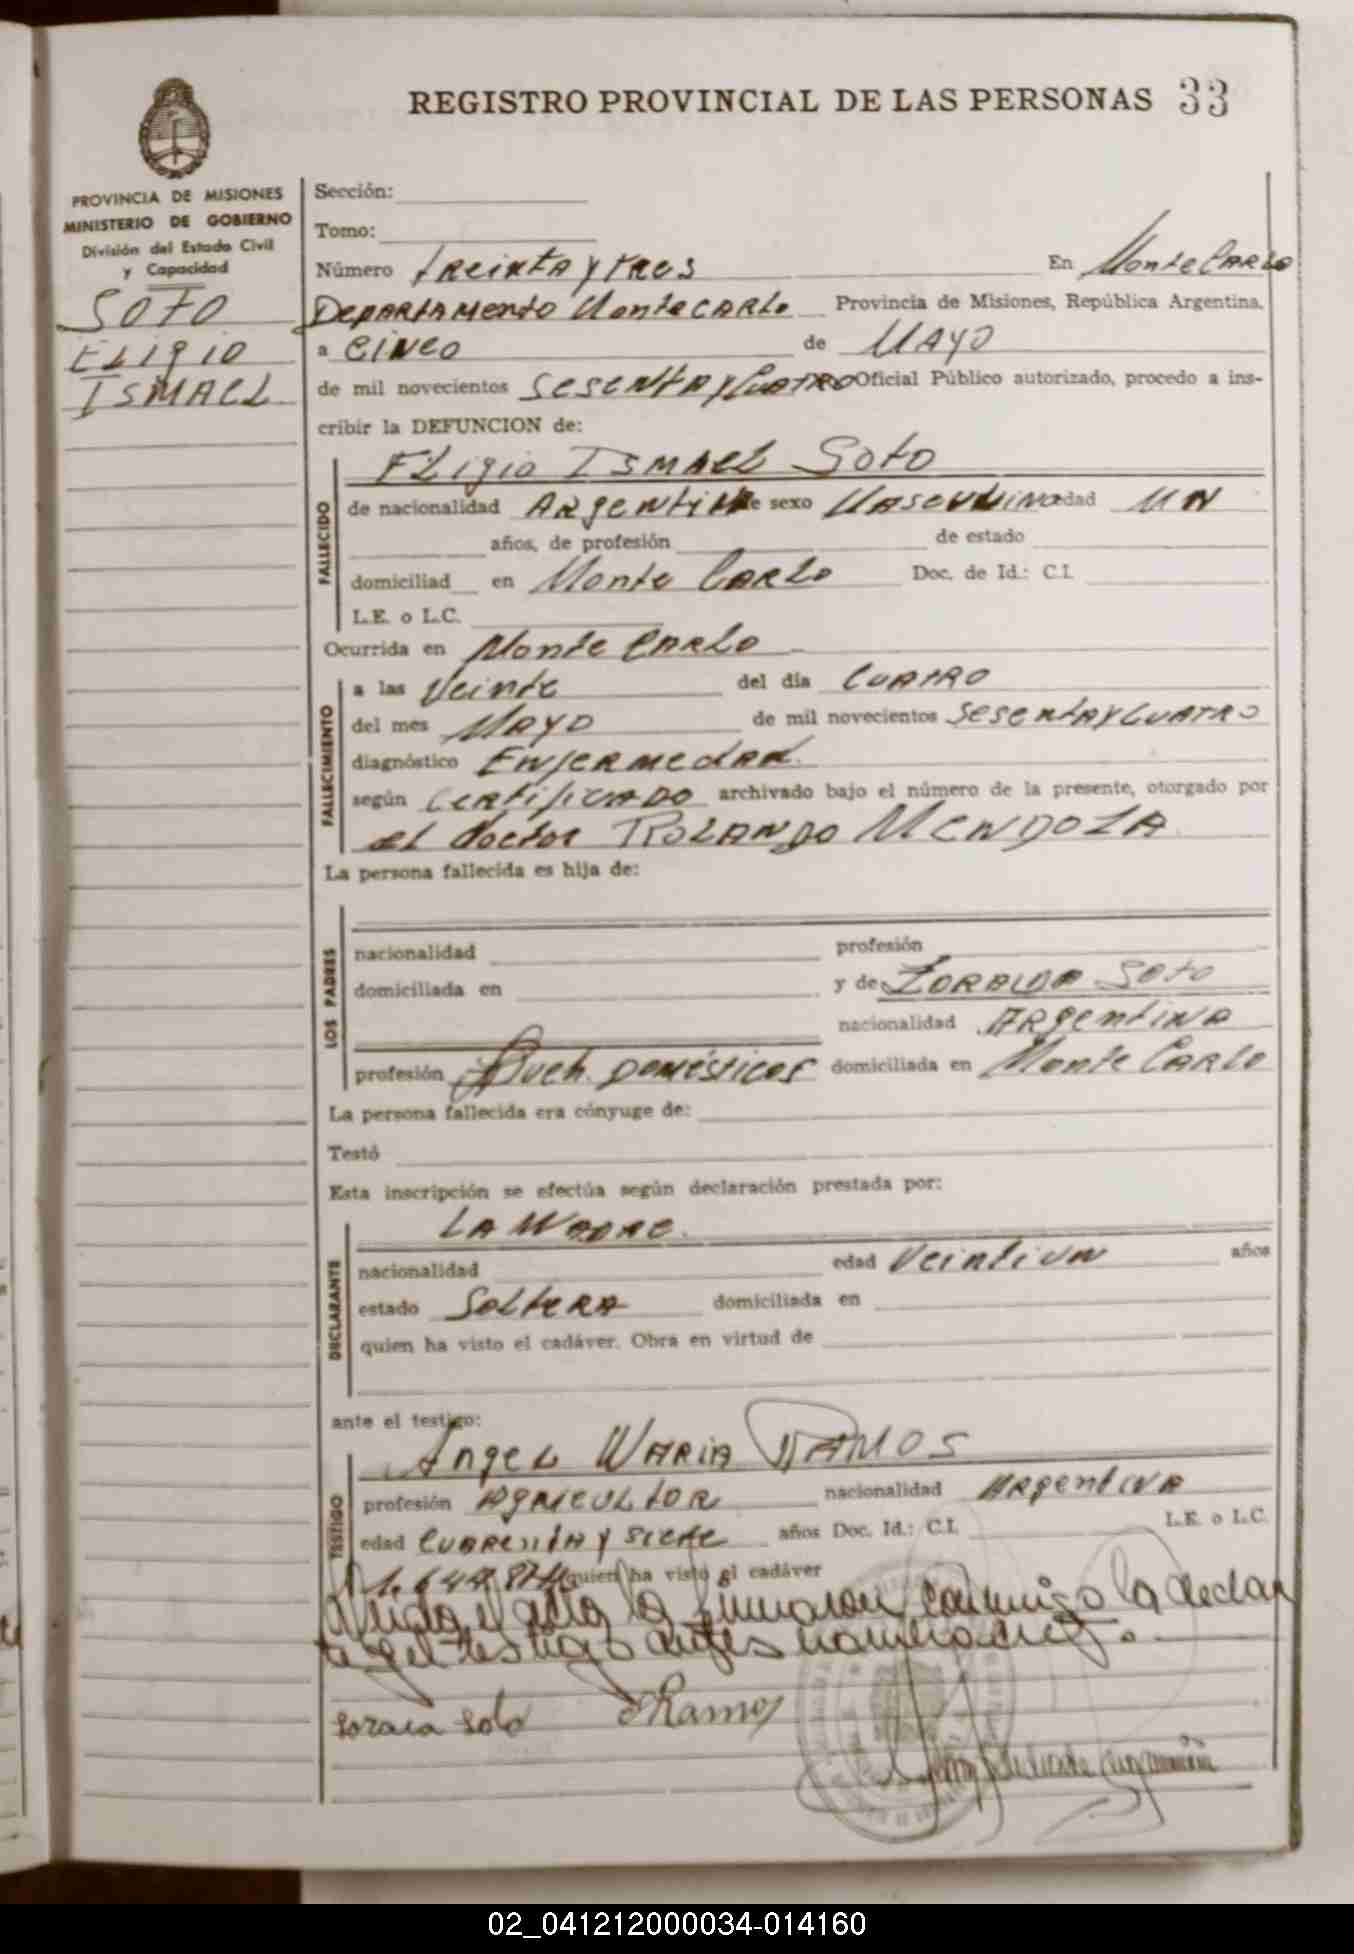 REGISTRO PROVINCIAL DE LAS PERSONAS 33
PROVINCIA DE MISIONES
MINISTERIO DE GOBIERNO
División del Estado Civil
y Capacidad
SOTO
ELIGIO
ISMAEL
Sección:
Tomo:
Número treinta y tres En Monte Carlo
Departamento Montecarlo Provincia de Misiones, República Argentina,
a cinco de Mayo
de mil novecientos sesenta y cuatro Oficial Público autorizado, procedo a ins-
cribir la DEFUNCION de:
Eligio Ismael Soto
FALLECIDO
de nacionalidad Argentina de sexo Masculino edad un
años, de profesión de estado
domiciliad en Monte Carlo Doc. de Id.: C.I.
L.E. o L.C.
Ocurrida en Monte Carlo
FALLECIMIENTO
a las veinte del día cuatro
del mes Mayo de mil novecientos sesenta y cuatro
diagnóstico Enfermedad.
según certificado archivado bajo el número de la presente, otorgado por
el doctor Rolando Mendoza
La persona fallecida es hija de:
LOS PADRES
nacionalidad profesión
domiciliada en y de Soto
nacionalidad Argentina
profesión domésticos domiciliada en Monte Carlo
La persona fallecida era cónyuge de:
Testó
Esta inscripción se efectúa según declaración prestada por:
La Madre.
DECLARANTE
nacionalidad edad veintiun años
estado soltera domiciliada en
quien ha visto el cadáver. Obra en virtud de
ante el testigo:
Angel Maria Ramos
TESTIGO
profesión Agricultor nacionalidad Argentina
edad cuarenta y siete años Doc. Id.: C.I. L.E. o L.C.
quien ha visto el cadáver
el acta la firmaron conmigo la declaran
te y el testigo antes
Soto Ramos
02_041212000034-014160